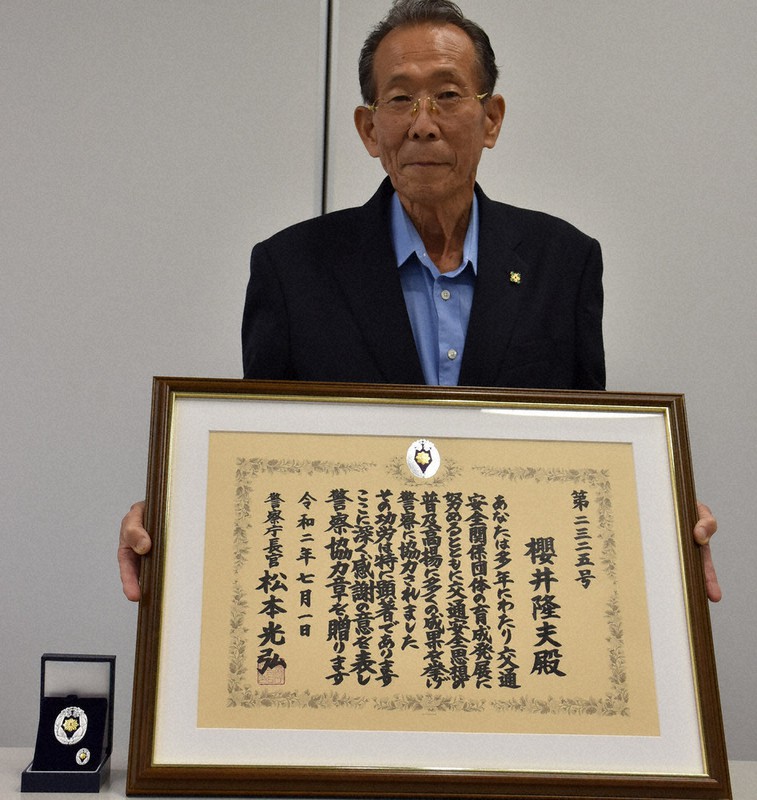 第二三二五号
櫻井隆夫殿
あなたは多年にわたり交通
安全関係団体の育成発展に
努めるとともに交通安全思想の
普及高揚に多くの成果を挙げ
警察に協力されました
その功労は特に顕著であります
ここに深く感謝の意を表し
警察協力章を贈ります
令和二年七月一日
警察庁長官 松本光弘